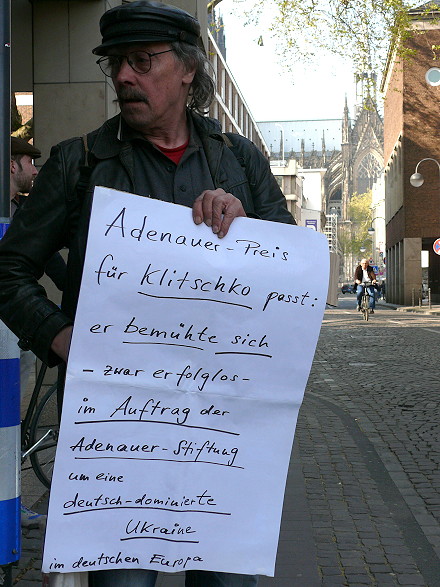 Adenauer-Preis
für Klitschko passt:
er bemühte sich
- zwar erfolglos -
im Auftrag der
Adenauer-Stiftung
um eine
deutsch-dominierte
Ukraine
im deutschen Europa